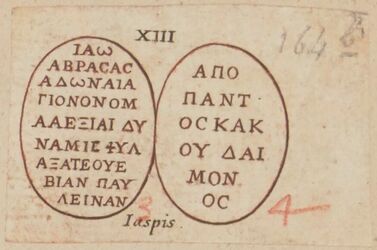 XIII
164
ΙΑω
ΑΒΡΑCΑC
ΑΔωΝΑΙΑ
ΓΙΟΝΟΝΟΜ
ΑΑΕΞΙΑΙ ΔΥ
ΝΑΜΙC ΦΥΛ
ΑΞΑΤΕΟΥΕ
ΒΙΑΝ ΠΑΥ
ΛΕΙΝΑΝ
ΑΠΟ
ΠΑΝΤ
ΟC ΚΑΚ
ΟΥ ΔΑΙ
ΜΟΝ
ΟC
3
4
Iaspis.